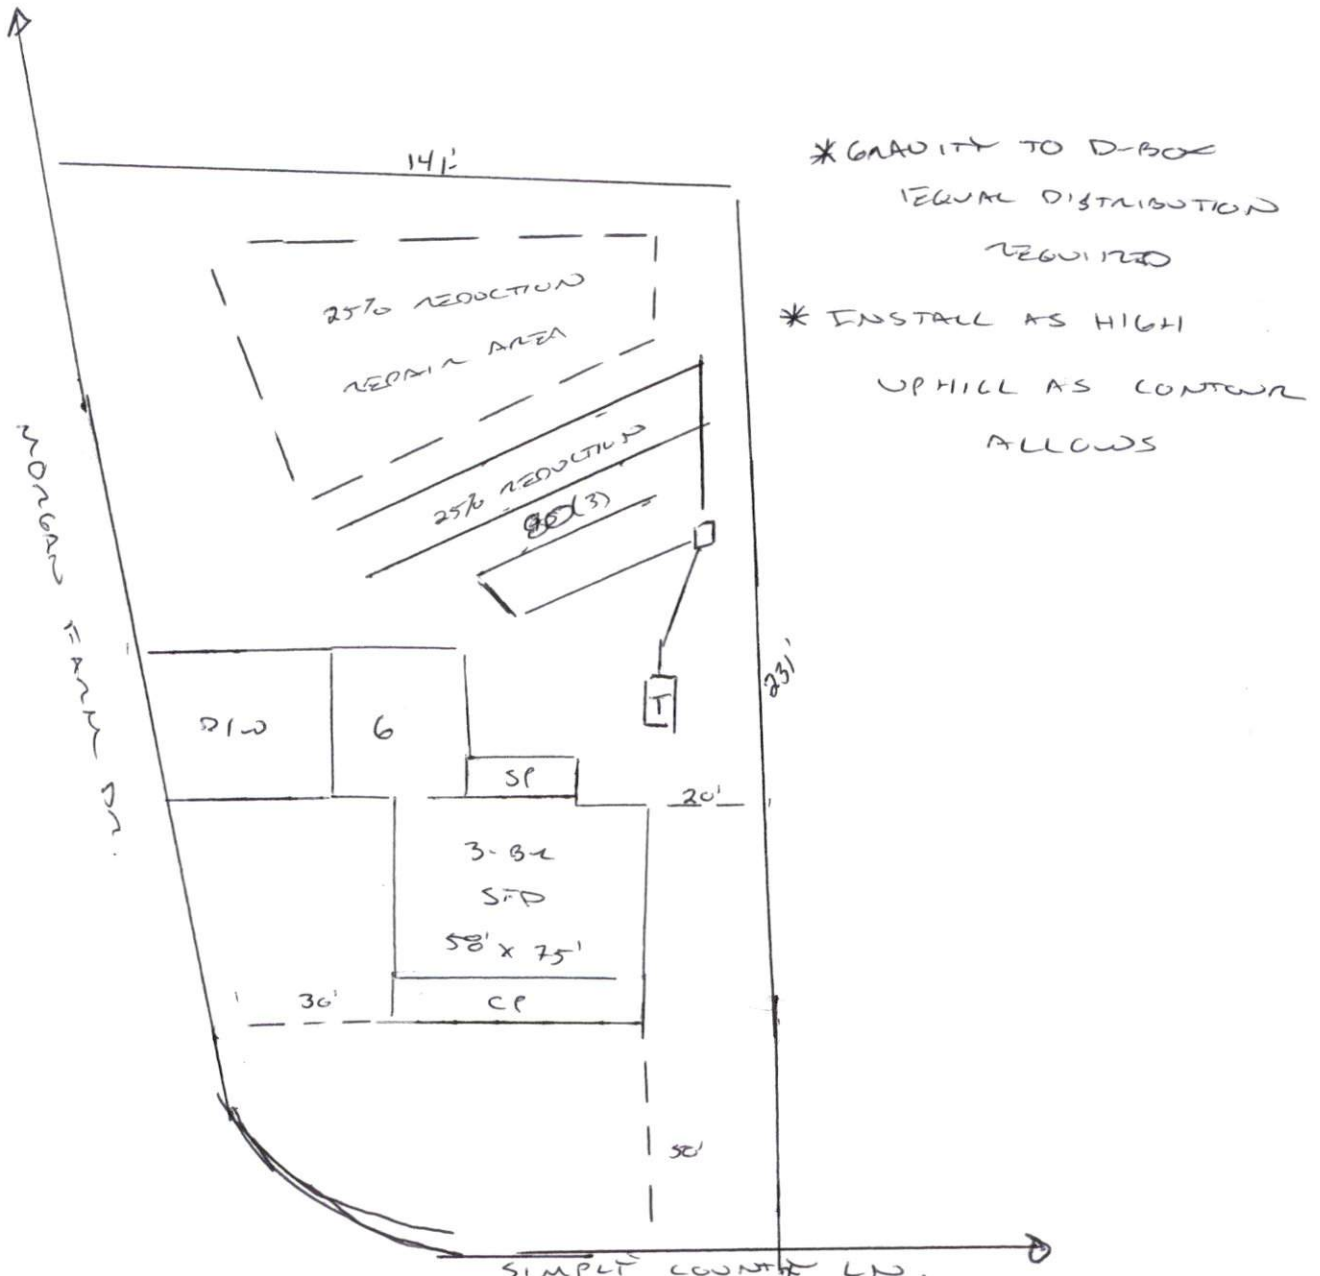 141'
* GRAVITY TO D-BOX
EQUAL DISTRIBUTION
REQUIRED
* INSTALL AS HIGH
UPHILL AS CONTOUR
ALLOWS
25% REDUCTION
REPAIR AREA
25% REDUCTION
(3)
MORGAN FARM DR.
231'
T
D/W
G
SP
20'
3-BR
SFD
58' x 75'
30'
CP
50'
SIMPLE COUNTRY LN.